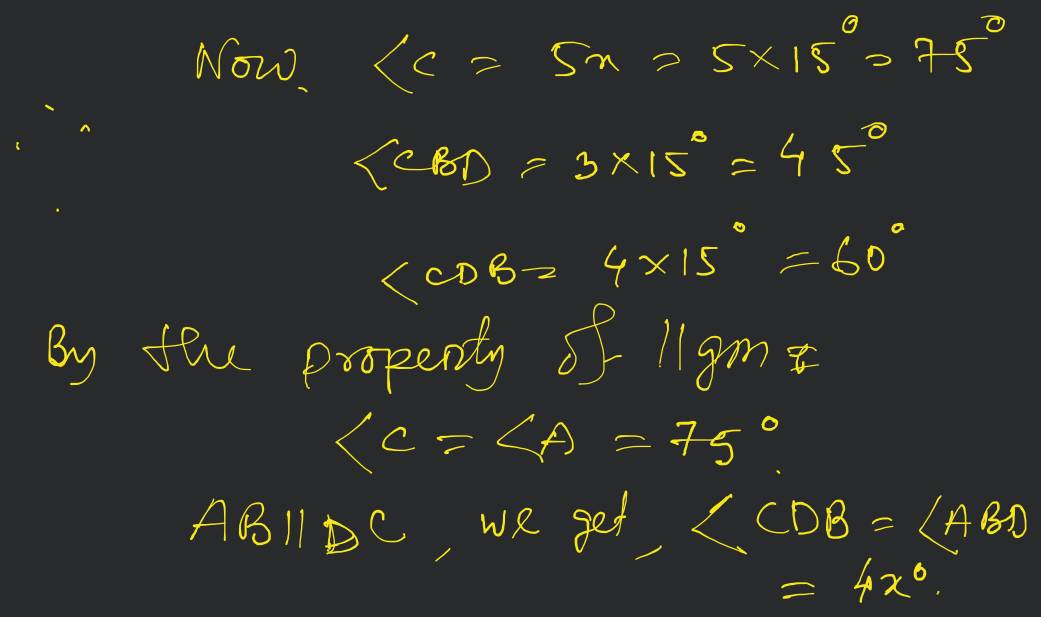 Now, <C = 5x = 5×15° = 75°
<CBD = 3×15° = 45°
<CDB = 4×15° = 60°
By the property of ||gm
<C = <A = 75°.
AB||DC, we get, <CDB = <ABD
= 4x°.